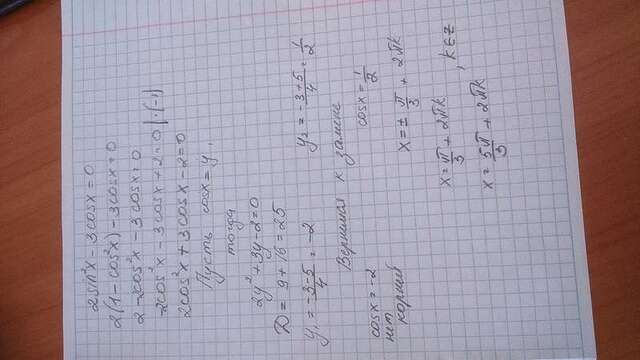 2sin²x - 3cosx = 0
2(1 - cos²x) - 3cosx = 0
2 - 2cos²x - 3cosx = 0
-2cos²x - 3cosx + 2 = 0 | · (-1)
2cos²x + 3cosx - 2 = 0
Пусть cosx = y,
тогда
2y² + 3y - 2 = 0
D = 9 + 16 = 25
y₁ = (-3-5)/4 = -2 y₂ = (-3+5)/4 = 1/2
Вернёмся к замене
cosx = -2 cosx = 1/2
нет
корней
x = ± π/3 + 2πk
x = π/3 + 2πk , k∈z
x = 5π/3 + 2πk